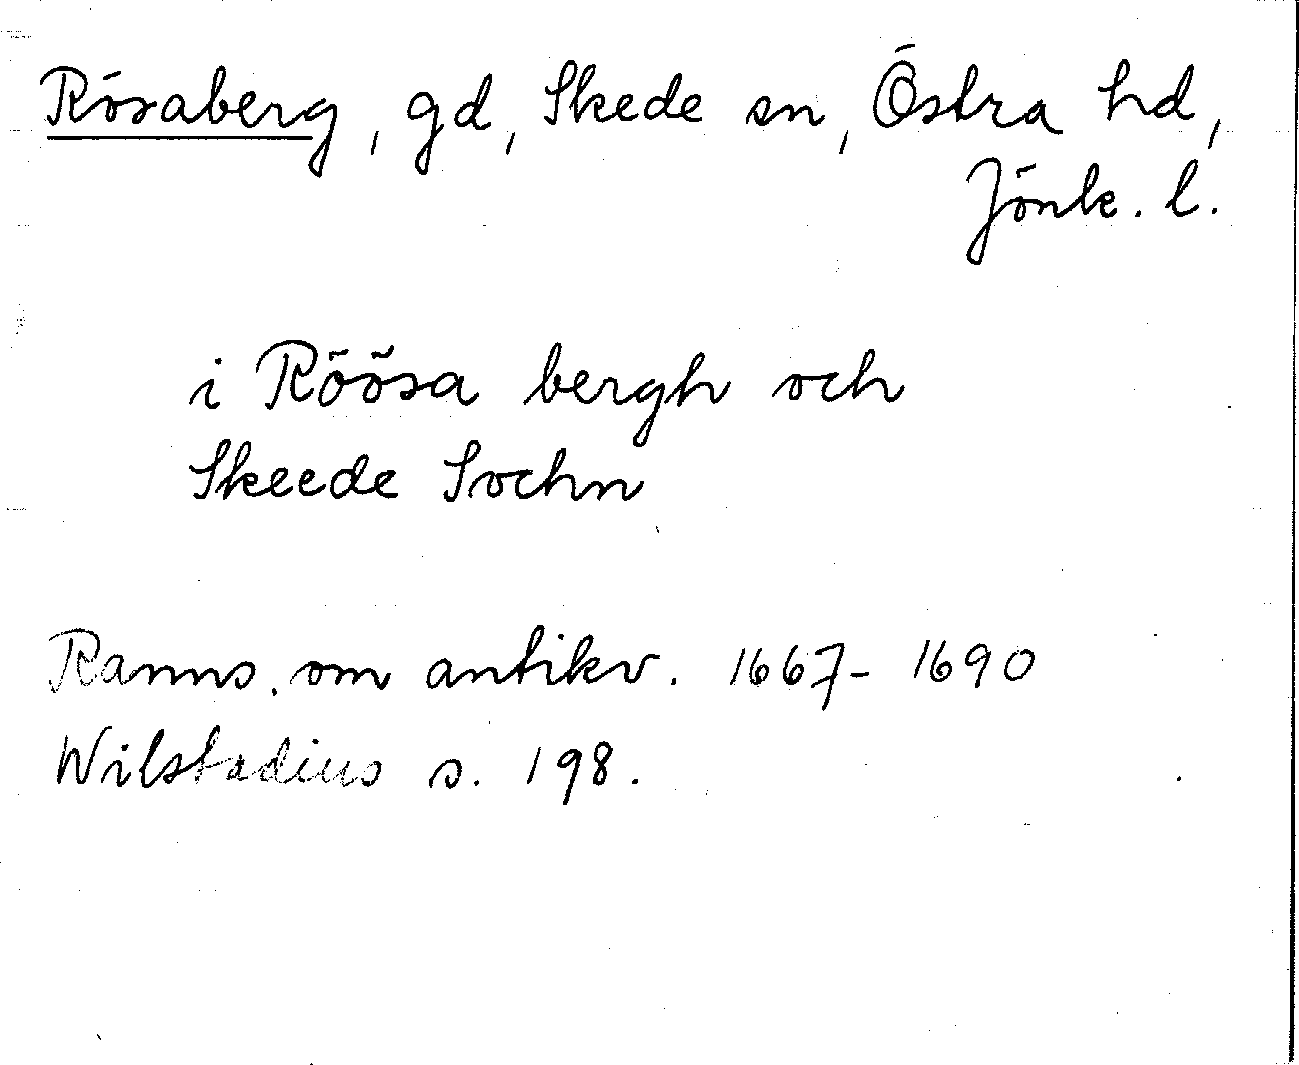 Rösaberg, gd, Skede sn, Östra hd,
Jönk. l.
i Röösa bergh och
Skeede Sochn
Ranns. om antikv. 1667-1690
Wilstadius s. 198.